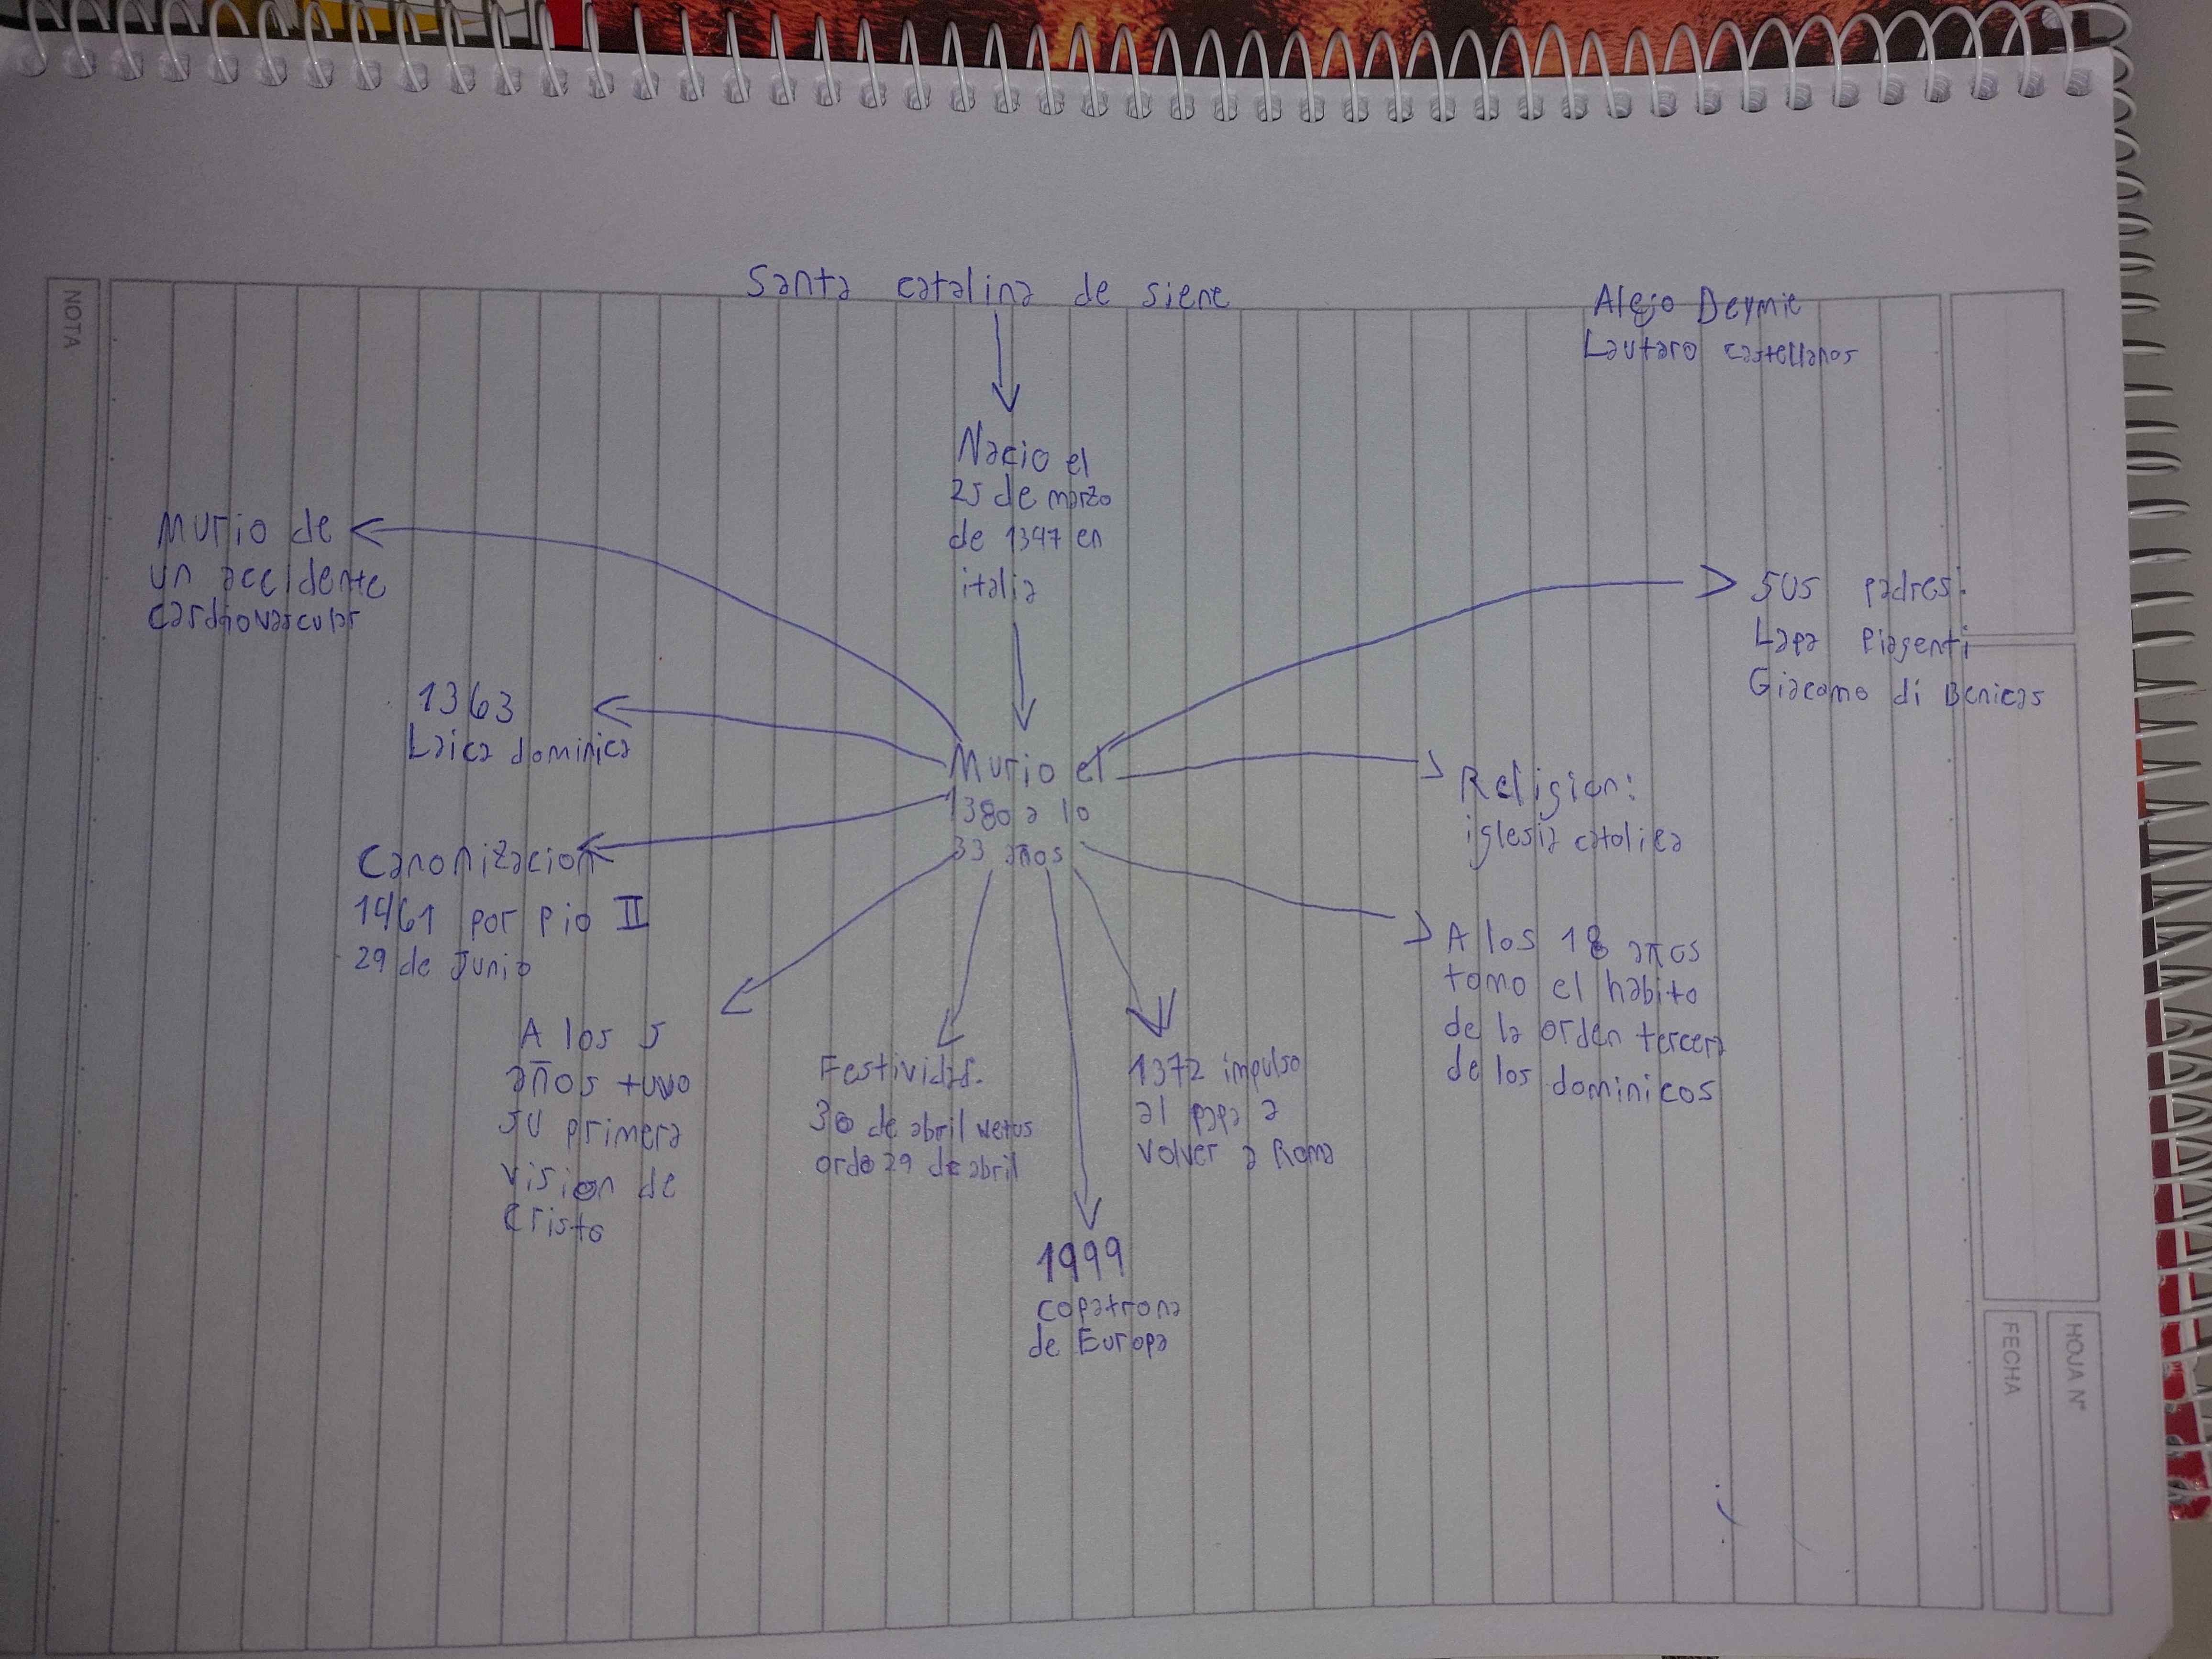 Santa catalina de siene
Alejo Deymie
Lautaro castellanos
Nacio el
25 de marzo
de 1347 en
italia
Murio de
un accidente
cardiovascular
sus padres:
Lapa Piagenti
Giacomo di Benicas
1363
Laica dominica
Murio el
1380 a lo
33 años
Religion:
iglesia catolica
Canonizacion
1461 por pio II
29 de Junio
A los 18 años
tomo el habito
de la orden tercera
de los dominicos
A los 5
años tuvo
su primera
vision de
Cristo
Festividad.
30 de abril vetus
ordo 29 de abril
1372 impulso
al papa a
volver a Roma
1999
copatrona
de Europa
NOTA
HOJA N°
FECHA